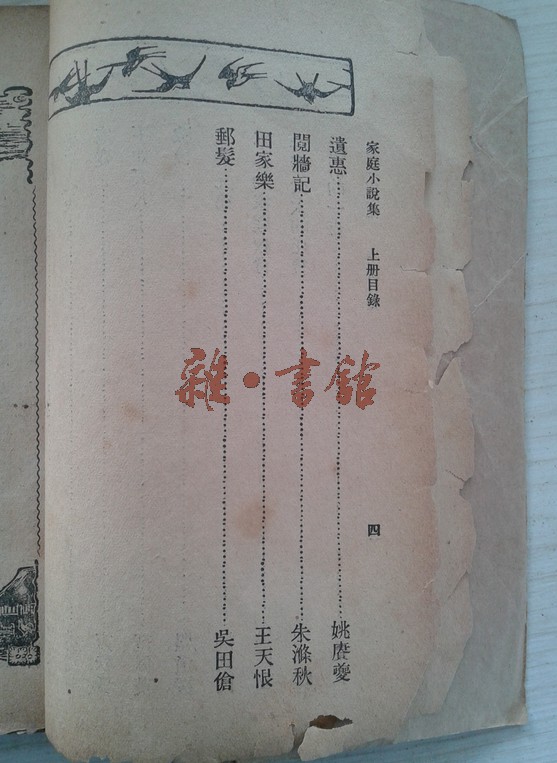 家庭小說集　上册目錄　四
遺惠……姚賡夔
鬩牆記……朱滌秋
田家樂……王天恨
郵髮……吳田傖
雜·書館